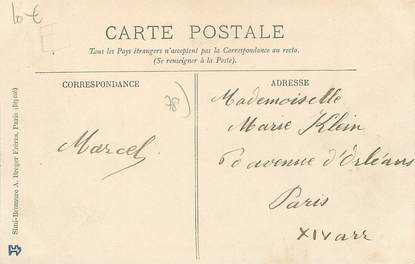 10 €
E
CARTE POSTALE
Tous les Pays étrangers n'acceptent pas la Correspondance au recto.
(Se renseigner à la Poste).
CORRESPONDANCE
ADRESSE
78)
Marcel
Mademoiselle
Marie Klein
60 avenue d'Orléans
Paris
XIV arr
Simi-Bromure A. Breger Frères, Paris (Déposé)